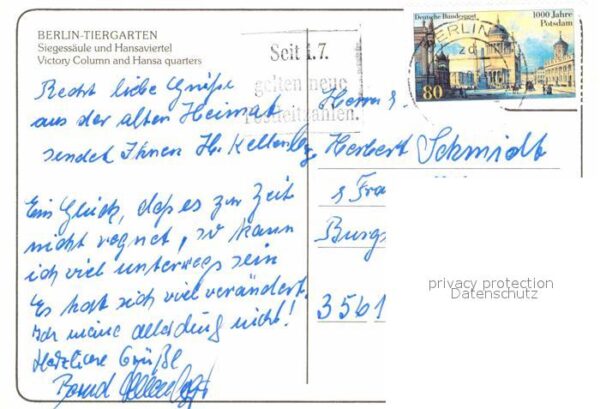 BERLIN-TIERGARTEN
Siegessäule und Hansaviertel
Victory Column and Hansa quarters
Recht liebe Grüße
aus der alten Heimat
sendet Ihnen H. Kellerb
Ein Glück, daß es zur Zeit
nicht regnet, so kann
ich viel unterwegs sein
Es hat sich viel verändert.
Ich meine allerding nicht!
Herzliche Grüße
Bernd
Seit 1.7.
gelten neue
Postleitzahlen.
Deutsche Bundespost
1000 Jahre
Potsdam
80
BERLIN
Herrn
Herbert Schmidt
Fra
Burgs
3561
privacy protection
Datenschutz